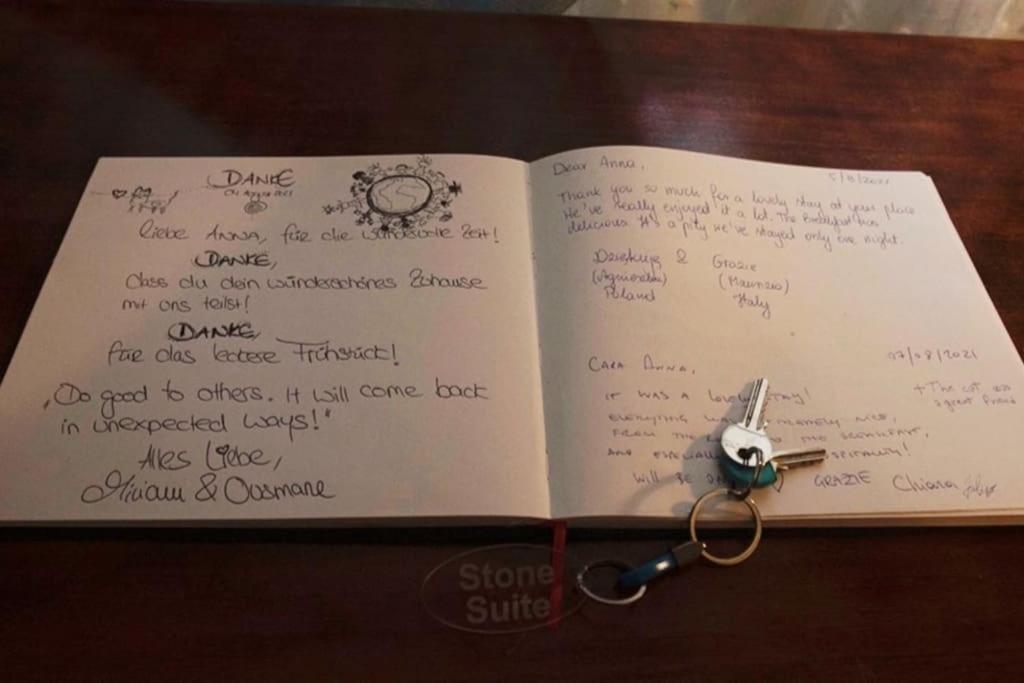 DANKE
August 2021
liebe ANNA, für die wundervolle Zeit!
DANKE,
dass du dein wunderschönes Zuhause
mit uns teilst!
DANKE,
für das leckere Frühstück!
„Do good to others. It will come back
in unexpected ways!"
Alles Liebe,
Miriam & Ousmane
Dear Anna,
5/8/2021
Thank you so much for a lovely stay at your place
We've really enjoyed it a lot. The Breakfast was
delicious. It's a pity we've stayed only one night.
Dziękuję & Grazie
(Agnieszka) (Maurizio)
Poland Italy
07/08/2021
CARA ANNA,
+ The cat was
a great friend
IT WAS A LOVELY STAY!
EVERYTHING WAS EXTREMELY NICE,
FROM THE TO THE BREAKFAST,
AND HOSPITALITY!
WILL BE GRAZIE Chiara
Stone
Suite